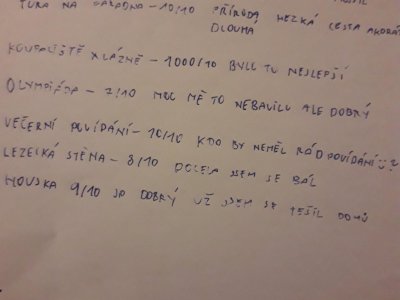 TÚRA NA - 10/10 PŘÍRODA HEZKÁ CESTA AKORÁT
DLOUHÁ
KOUPALIŠTĚ X LÁZNĚ - 1000/10 BYLO TO NEJLEPŠÍ
OLYMPIÁDA - 7/10 MOC MĚ TO NEBAVILO ALE DOBRÝ
VEČERNÍ POVÍDÁNÍ - 10/10 KDO BY NEMĚL RÁD POVÍDÁNÍ ?
LEZECKÁ STĚNA - 8/10 DOCELA JSEM SE BÁL
9/10 DOBRÝ UŽ JSEM SE TĚŠIL DOMŮ